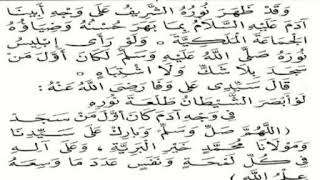 وَقَدْ ظَهَرَ نُورُهُ الشَّرِيفُ عَلَى وَجْهِ أَبِينَا
آدَمَ عَلَيْهِ السَّلَامُ بِمَا بَهَرَ حُسْنُهُ وَضِيَاؤُهُ
الْجَمَاعَةَ الْمَلَكِيَّةَ وَلَوْ رَأَى إِبْلِيسُ
نُورَهُ صَلَّى اللهُ عَلَيْهِ وَسَلَّمَ لَكَانَ أَوَّلَ مَنْ
سَجَدَ بِلَا شَكٍّ وَلَا اشْتِبَاهٍ
قَالَ سَيِّدِي عَلِي وَفَا رَضِيَ اللهُ عَنْهُ :
لَوْ أَبْصَرَ الشَّيْطَانُ طَلْعَةَ نُورِهِ
فِي وَجْهِ آدَمَ كَانَ أَوَّلَ مَنْ سَجَدَ
( اللَّهُمَّ صَلِّ وَسَلِّمْ وَبَارِكْ عَلَى سَيِّدِنَا
وَمَوْلَانَا مُحَمَّدٍ خَيْرِ الْبَرِيَّةِ ، وَعَلَى آلِهِ
فِي كُلِّ لَمْحَةٍ وَنَفَسٍ عَدَدَ مَا وَسِعَهُ
عِلْمُ اللهِ )